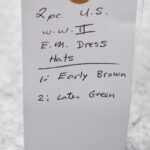 2 pc. U.S.
W.W. II
E.M. Dress
Hats
1; Early Brown
2; Later Green